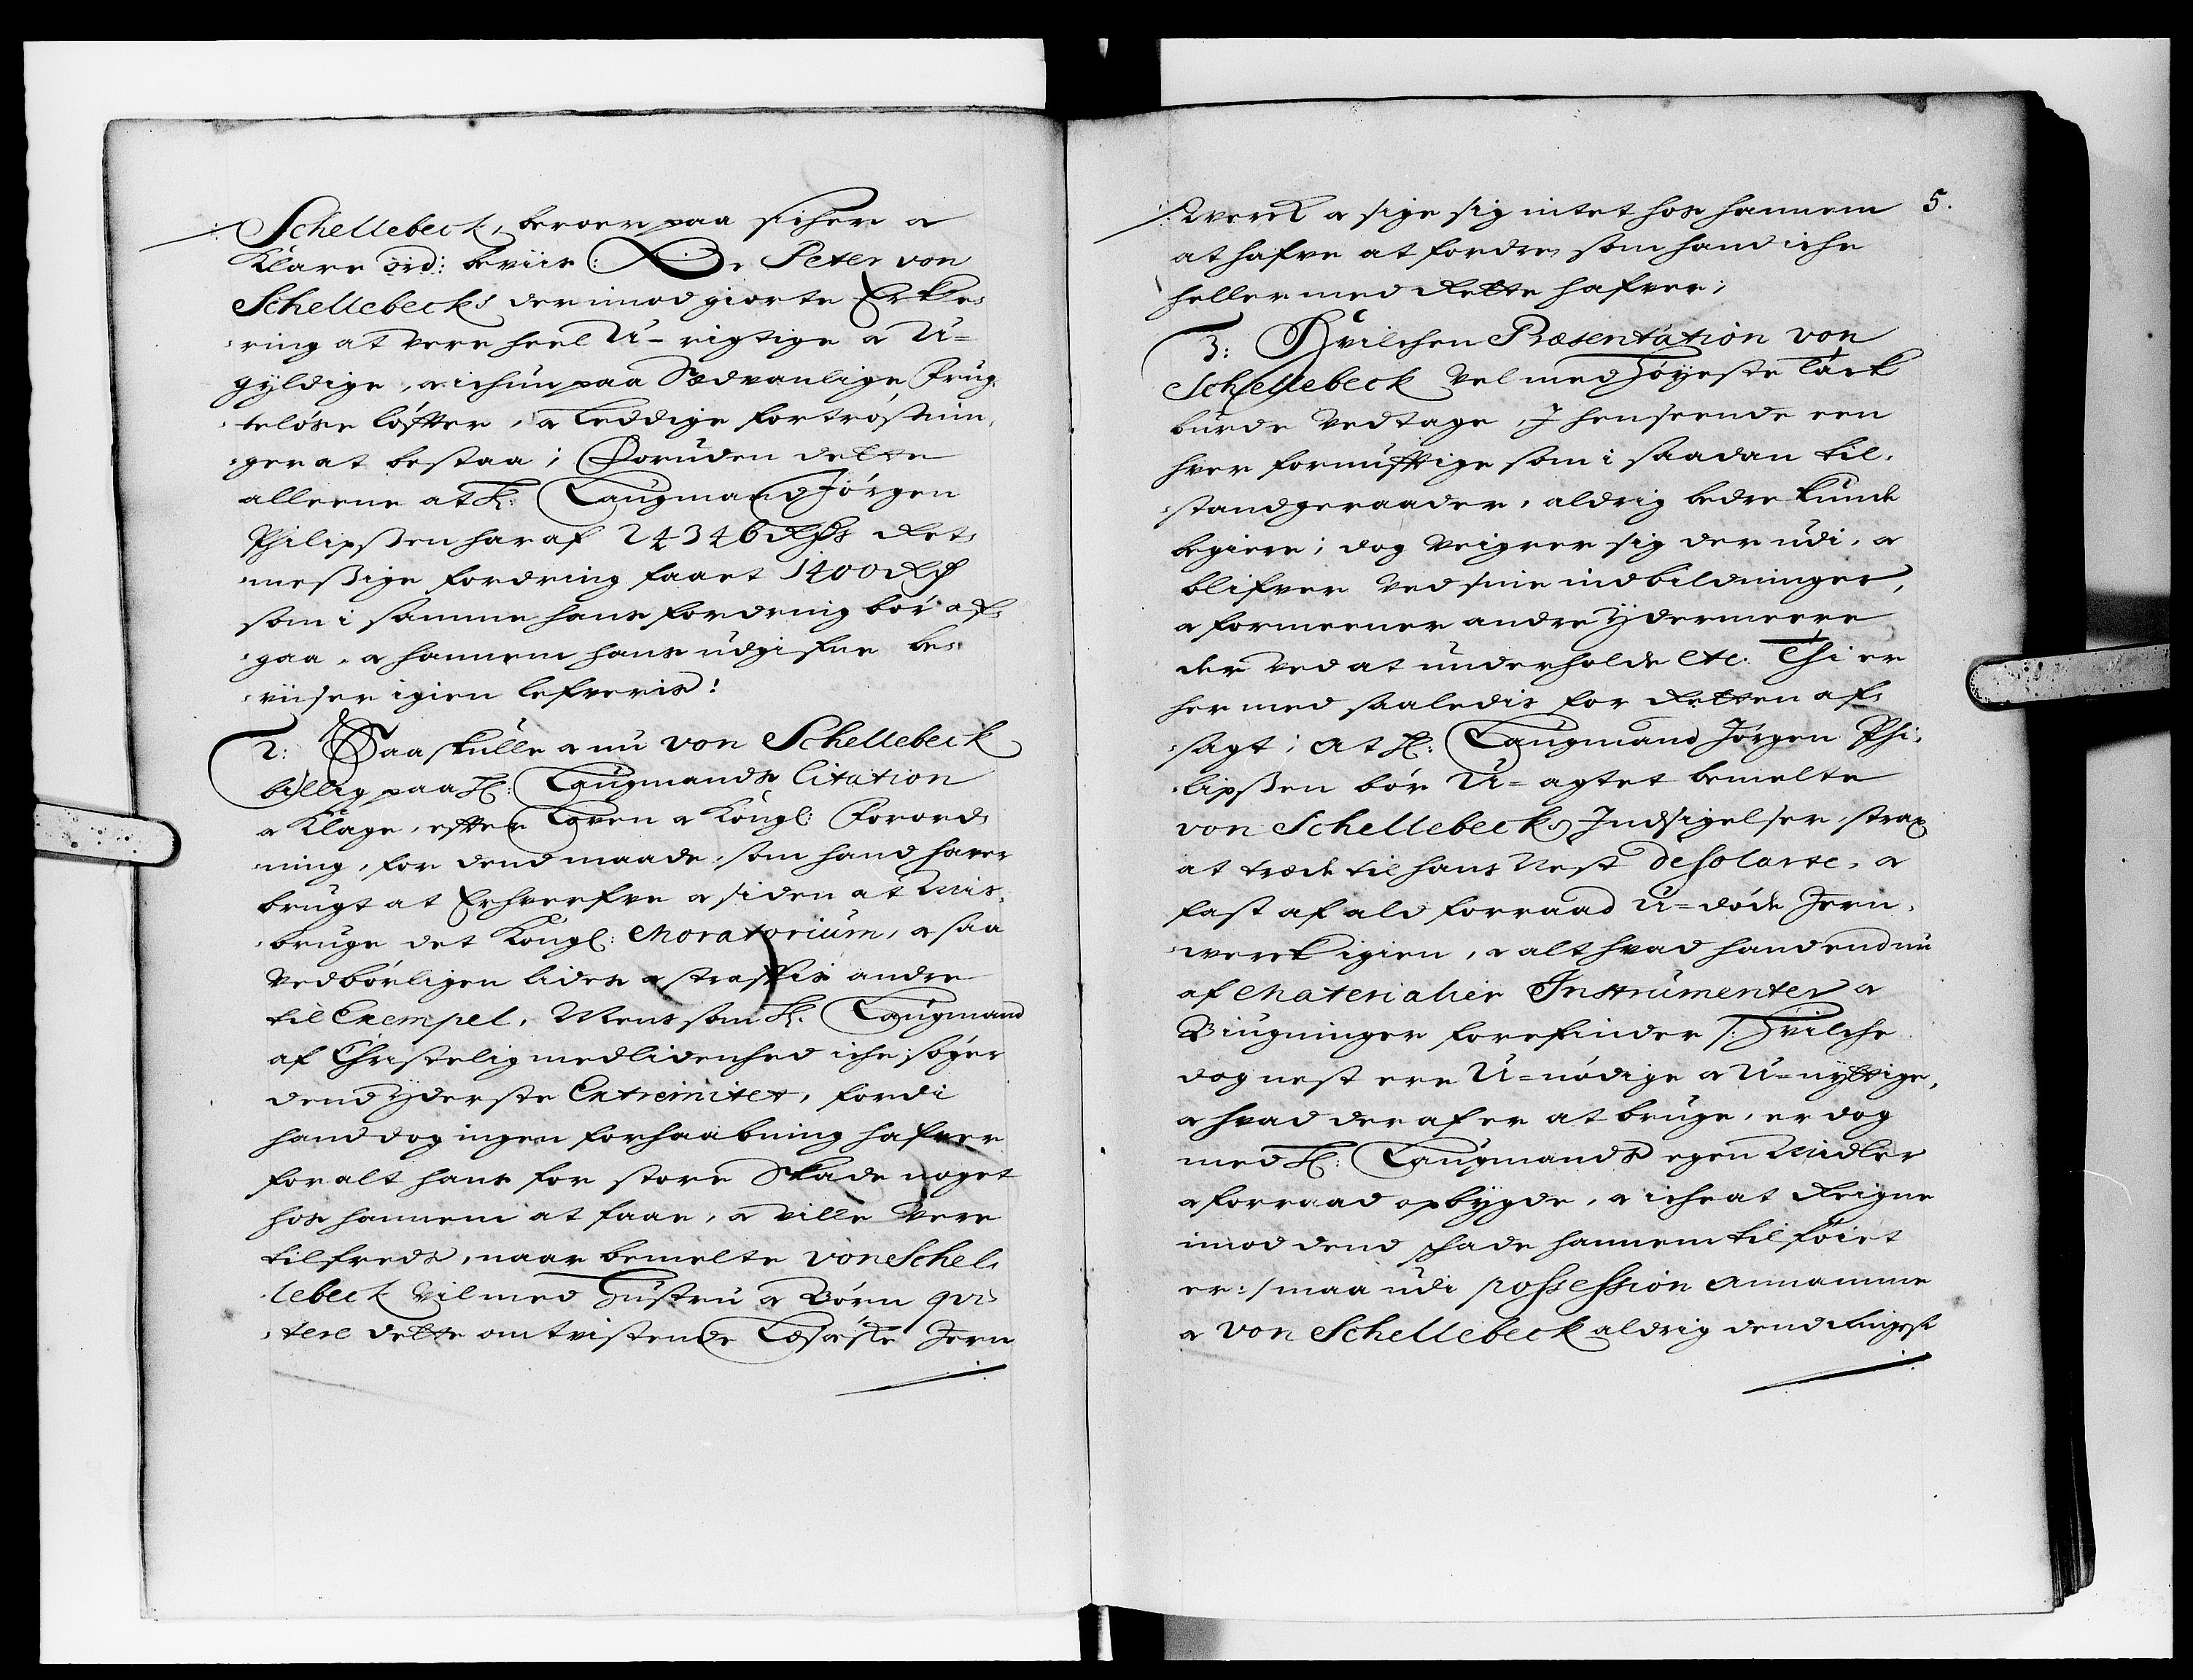 Schellebeck, beroer paa sicher a
Klare ord: beviis: Peter von
Schellebecks derimod giorte Erkle-
ring at vere heel U-rigtige a U=
gyldige, a ichun paa Sædvanlige, Frug-
teløse løffter, a leddige fortrøstnin-
ger at bestaa; Foruden dette
alleene at H: Laugmand Jørgen
Philipsßen har af 24346 Rdlrs Ret-
meßige fordring faaet 1400 Rd
som i samme hans fordring bør af-
gaa, a hannem hans udgifne be-
viiser igien lefveris!
2: Saa skulle a nu von Schellebeck
billig paa H: Laugmands Citation
a Klage, effter Loven a Kongl: Forord-
ning, for dend maade, som hand hafver
brugt at Erhverfve a siden at mis-
bruge det Kongl: Moratorium, a saa
vedbørligen lides a straffis andre
til Exempel. Mens som H. Laugmand
af Christelig medlidenhed iche søger
dend yderste Extremitet, fordi
hand dog ingen forhaabning hafver
for alt hans for store Skade noget
hos hannem at faae, a ville vere
tilfreds, naar bemelte von Schel-
lebeck vil med Hustru a Børn qvi-
tere dette omtvistende Læsøeste Jern
5.
Werck a sige sig intet hos hannem
at hafve at fordre, som hand iche
heller med Rette hafver;
3: Hvilchen Præsentation von
Schellebeck vel med høyeste Tack
burde vedtage, I henseende een
hver fornufftige som i saadan til-
stand geraader, aldrig bedre kunde
begiere; dog veigrer sig der udi, a
blifver ved sine indbildninger,
a formeener andre ydermeere
der ved at underholde etc. Thi er
her med saaledis for Retten af-
sagt; At H: Laugmand Jørgen Phi-
lipsßen bør U=agtet bemelte
von Schellebecks Indsigelser, strax
at træde til hans Nest desolarte, a
fast af ald forraad U=døde Jern-
werck igien, a alt hvad hand endnu
af Materialier Instrumenter a
Biugninger forefinder /: hvilche
dog nest ere U=nødige a U=nyttige,
a hvad der af er at bruge, er dog
med H: Laugmands egen Midler
a forraad opbygde, a iche at Reigne
imod dend schade hannem tilføiet
er :/ maa udi possession annamme
a von Schellebeck aldrig dend ringeste